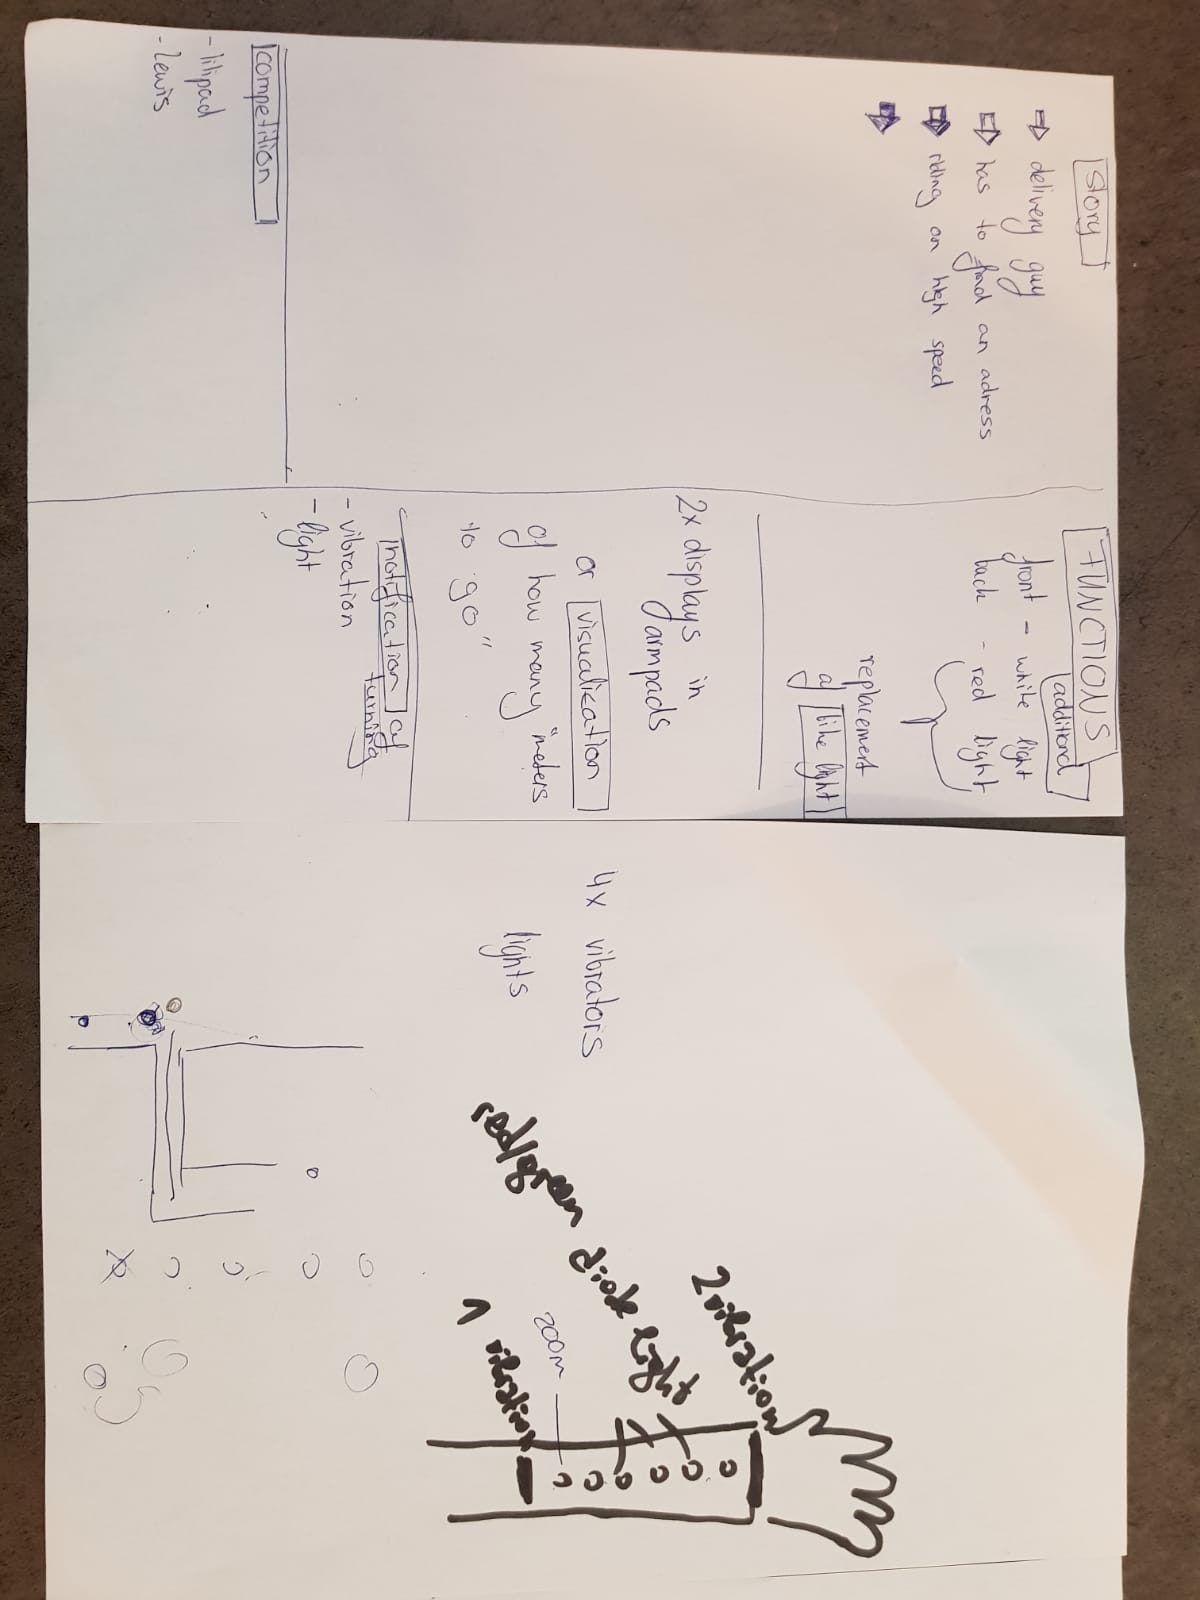 story
delivery guy
has to find an adress
riding on high speed
competition
- lilipad
- Lewis
FUNCTIONS
additional
front - white light
back - red light
replacement
of bike light
2x displays in
armpads
or visualization
of how many "meters
to go"
notification of
turning
- vibration
- light
4x vibrators
lights
2 vibration
red/green diode light
200m
1 vibration